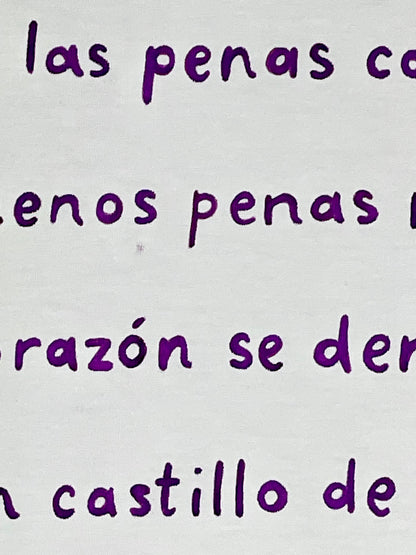 las penas co
enos penas
razón se der
n castillo de